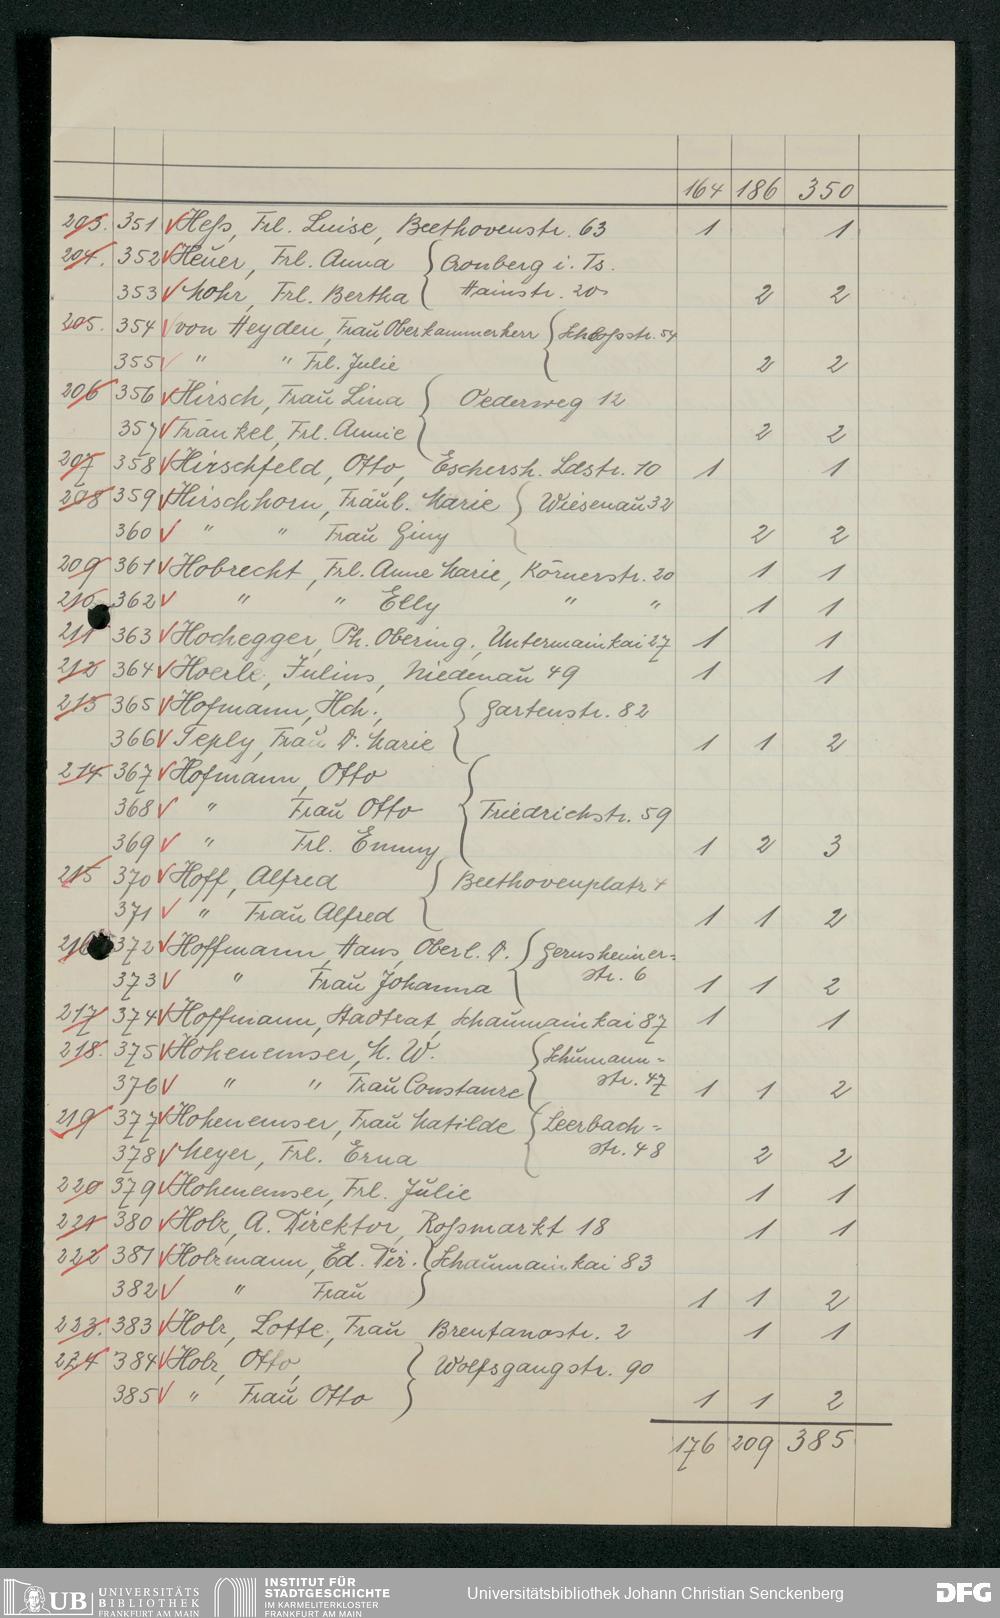 164 186 350
203. 351 Heß, Frl. Luise, Beethovenstr. 63 1 1
204. 352 Heuer, Frl. Anna Cronberg i. Ts.
353 Mohr, Frl. Bertha Hainstr. 20 2 2
205. 354 von Heyden, Frau Oberkammerherr Schloßstr. 54
355 " " Frl. Julie 2 2
206 356 Hirsch, Frau Lina Oederweg 12
357 Fränkel, Frl. Annie 2 2
207 358 Hirschfeld, Otto, Eschersh. Ldstr. 10 1 1
208 359 Hirschhorn, Fräul. Marie Wiesenau 32
360 " " Frau Giny 2 2
209 361 Hobrecht, Frl. Anne Marie, Körnerstr. 20 1 1
210 362 " " Elly " " 1 1
211 363 Hochegger, Ph. Obering., Untermainkai 27 1 1
212 364 Hoerle, Julius, Niedenau 49 1 1
213 365 Hofmann, Hch., Gartenstr. 82
366 Teply, Frau D. Marie 1 1 2
214 367 Hofmann, Otto
368 " Frau Otto Friedrichstr. 59
369 " Frl. Emmy 1 2 3
215 370 Hoff, Alfred Beethovenplatz 4
371 " Frau Alfred 1 1 2
216 372 Hoffmann, Hans, Oberl. D. Gernsheimer=
373 " Frau Johanna str. 6 1 1 2
217 374 Hoffmann, Stadtrat, Schaumainkai 87 1 1
218. 375 Hohenemser, M. W. Schumann=
376 " " Frau Constanze str. 47 1 1 2
219 377 Hohenemser, Frau Matilde Leerbach=
378 Meyer, Frl. Erna str. 48 2 2
220 379 Hohenemser, Frl. Julie 1 1
221 380 Holz, A. Direktor, Roßmarkt 18 1 1
222 381 Holzmann, Ed. Dir. Schaumainkai 83
382 " Frau 1 1 2
223. 383 Holz, Lotte, Frau Brentanostr. 2 1 1
224 384 Holz, Otto, Wolfsgangstr. 90
385 " Frau Otto 1 1 2
176 209 385
UB UNIVERSITÄTS
BIBLIOTHEK
FRANKFURT AM MAIN
INSTITUT FÜR
STADTGESCHICHTE
IM KARMELITERKLOSTER
FRANKFURT AM MAIN
Universitätsbibliothek Johann Christian Senckenberg
DFG